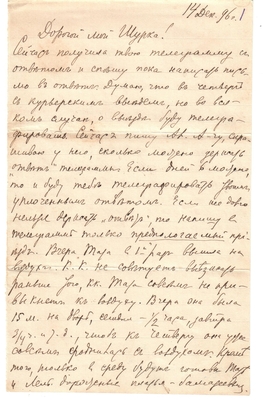 14 Дек. 96 г.
Дорогой мой Шурка!
Сейчас получила твою телеграмму съ
отвѣтомъ и спѣшу пока написать пись-
мо въ отвѣтъ. Думаю что въ четвергъ
съ курьерскимъ выѣдемъ, но во вся-
комъ случаѣ, о выѣздѣ буду телегра-
фировать. Сейчасъ пишу Ал. спра-
шиваю у него, сколько можно держать
"отвѣтъ" телеграммы. Если дней 5 можно,
то и буду тебѣ телеграфировать
уплоченнымъ отвѣтомъ. Если
нельзя держать "отвѣтъ", то напишу въ
телеграммѣ только предполагаемый
Вчера Тата въ 1й разъ вышла на
воздухъ. К. К. не совѣтуетъ выѣзжать
раньше чѣмъ Тата совсѣмъ не при-
выкнетъ къ воздуху. Вчера она была
15 м. на дворѣ, сегодня – 1/2 часа, завтра
3/4 ч. и т. д., чтобъ къ четвергу
совсѣмъ съ воздухомъ. Кромѣ
того, только въ среду будутъ готовы
и Лелѣ дорожныя платья